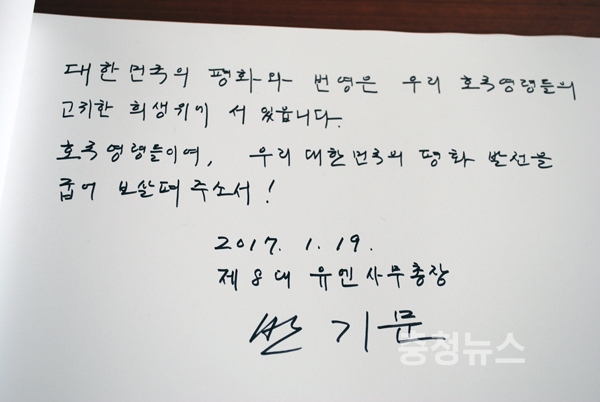 대한민국의 평화와 번영은 우리 호국영령들의
고귀한 희생위에 서 있읍니다.
호국영령들이여, 우리 대한민국의 평화 발전을
굽어 보살펴주소서!
2017. 1. 19.
제8대 유엔사무총장
반기문
충청뉴스